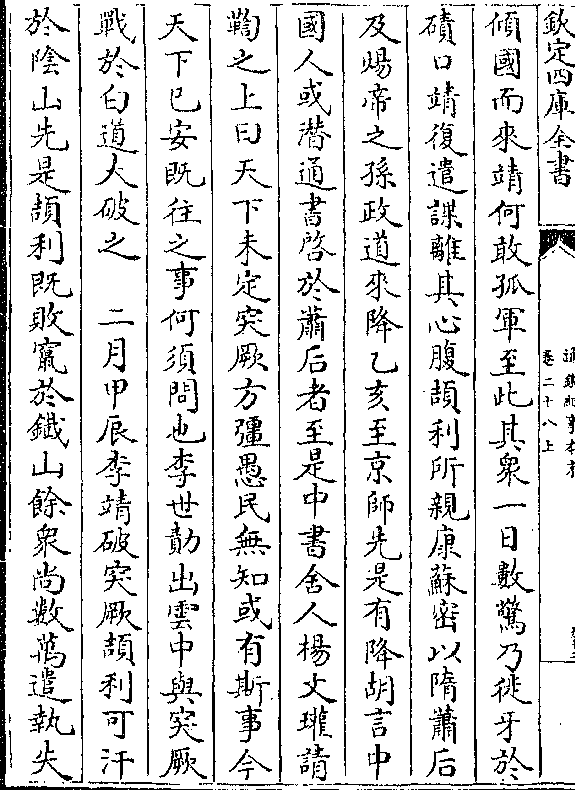 欽定四庫全書
通鑑紀事本末
卷二十八上
傾國而來靖何敢孤軍至此其衆一日數驚乃徙牙於
磧口靖復遣諜離其心腹頡利所親康蘇密以隋蕭后
及煬帝之孫政道來降乙亥至京師先是有降胡言中
國人或潛通書啓於蕭后者至是中書舍人楊文瓘請
鞫之上曰天下未定突厥方彊愚民無知或有斯事今
天下已安既往之事何須問也李世勣出雲中與突厥
戰於白道大破之　二月甲辰李靖破突厥頡利可汗
於陰山先是頡利既敗竄於鐵山餘衆尚數萬遣執失